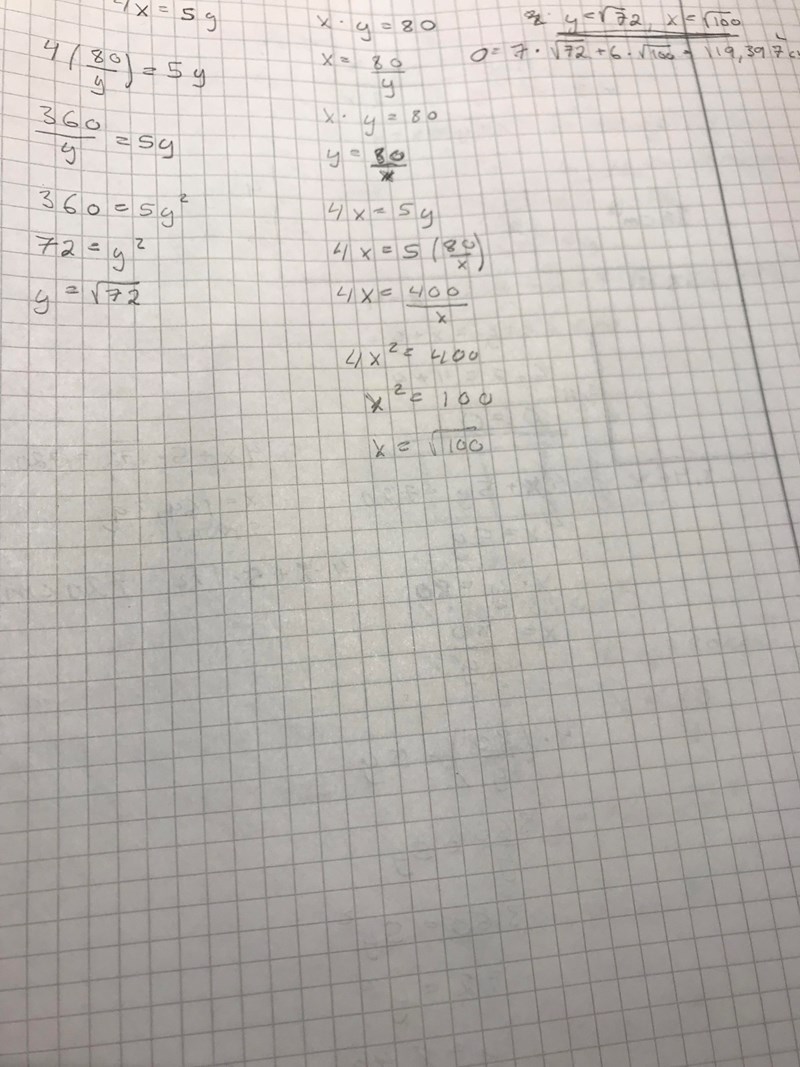 4x = 5y
4(80/y) = 5y
360/y = 5y
360 = 5y²
72 = y²
y = √72
x · y = 80
x = 80/y
x · y = 80
y = 80/x
4x = 5y
4x = 5(80/x)
4x = 400/x
4x² = 400
x² = 100
x = √100
y = √72, x = √100
O = 7 · √72 + 6 · √100 = 119,397 cm